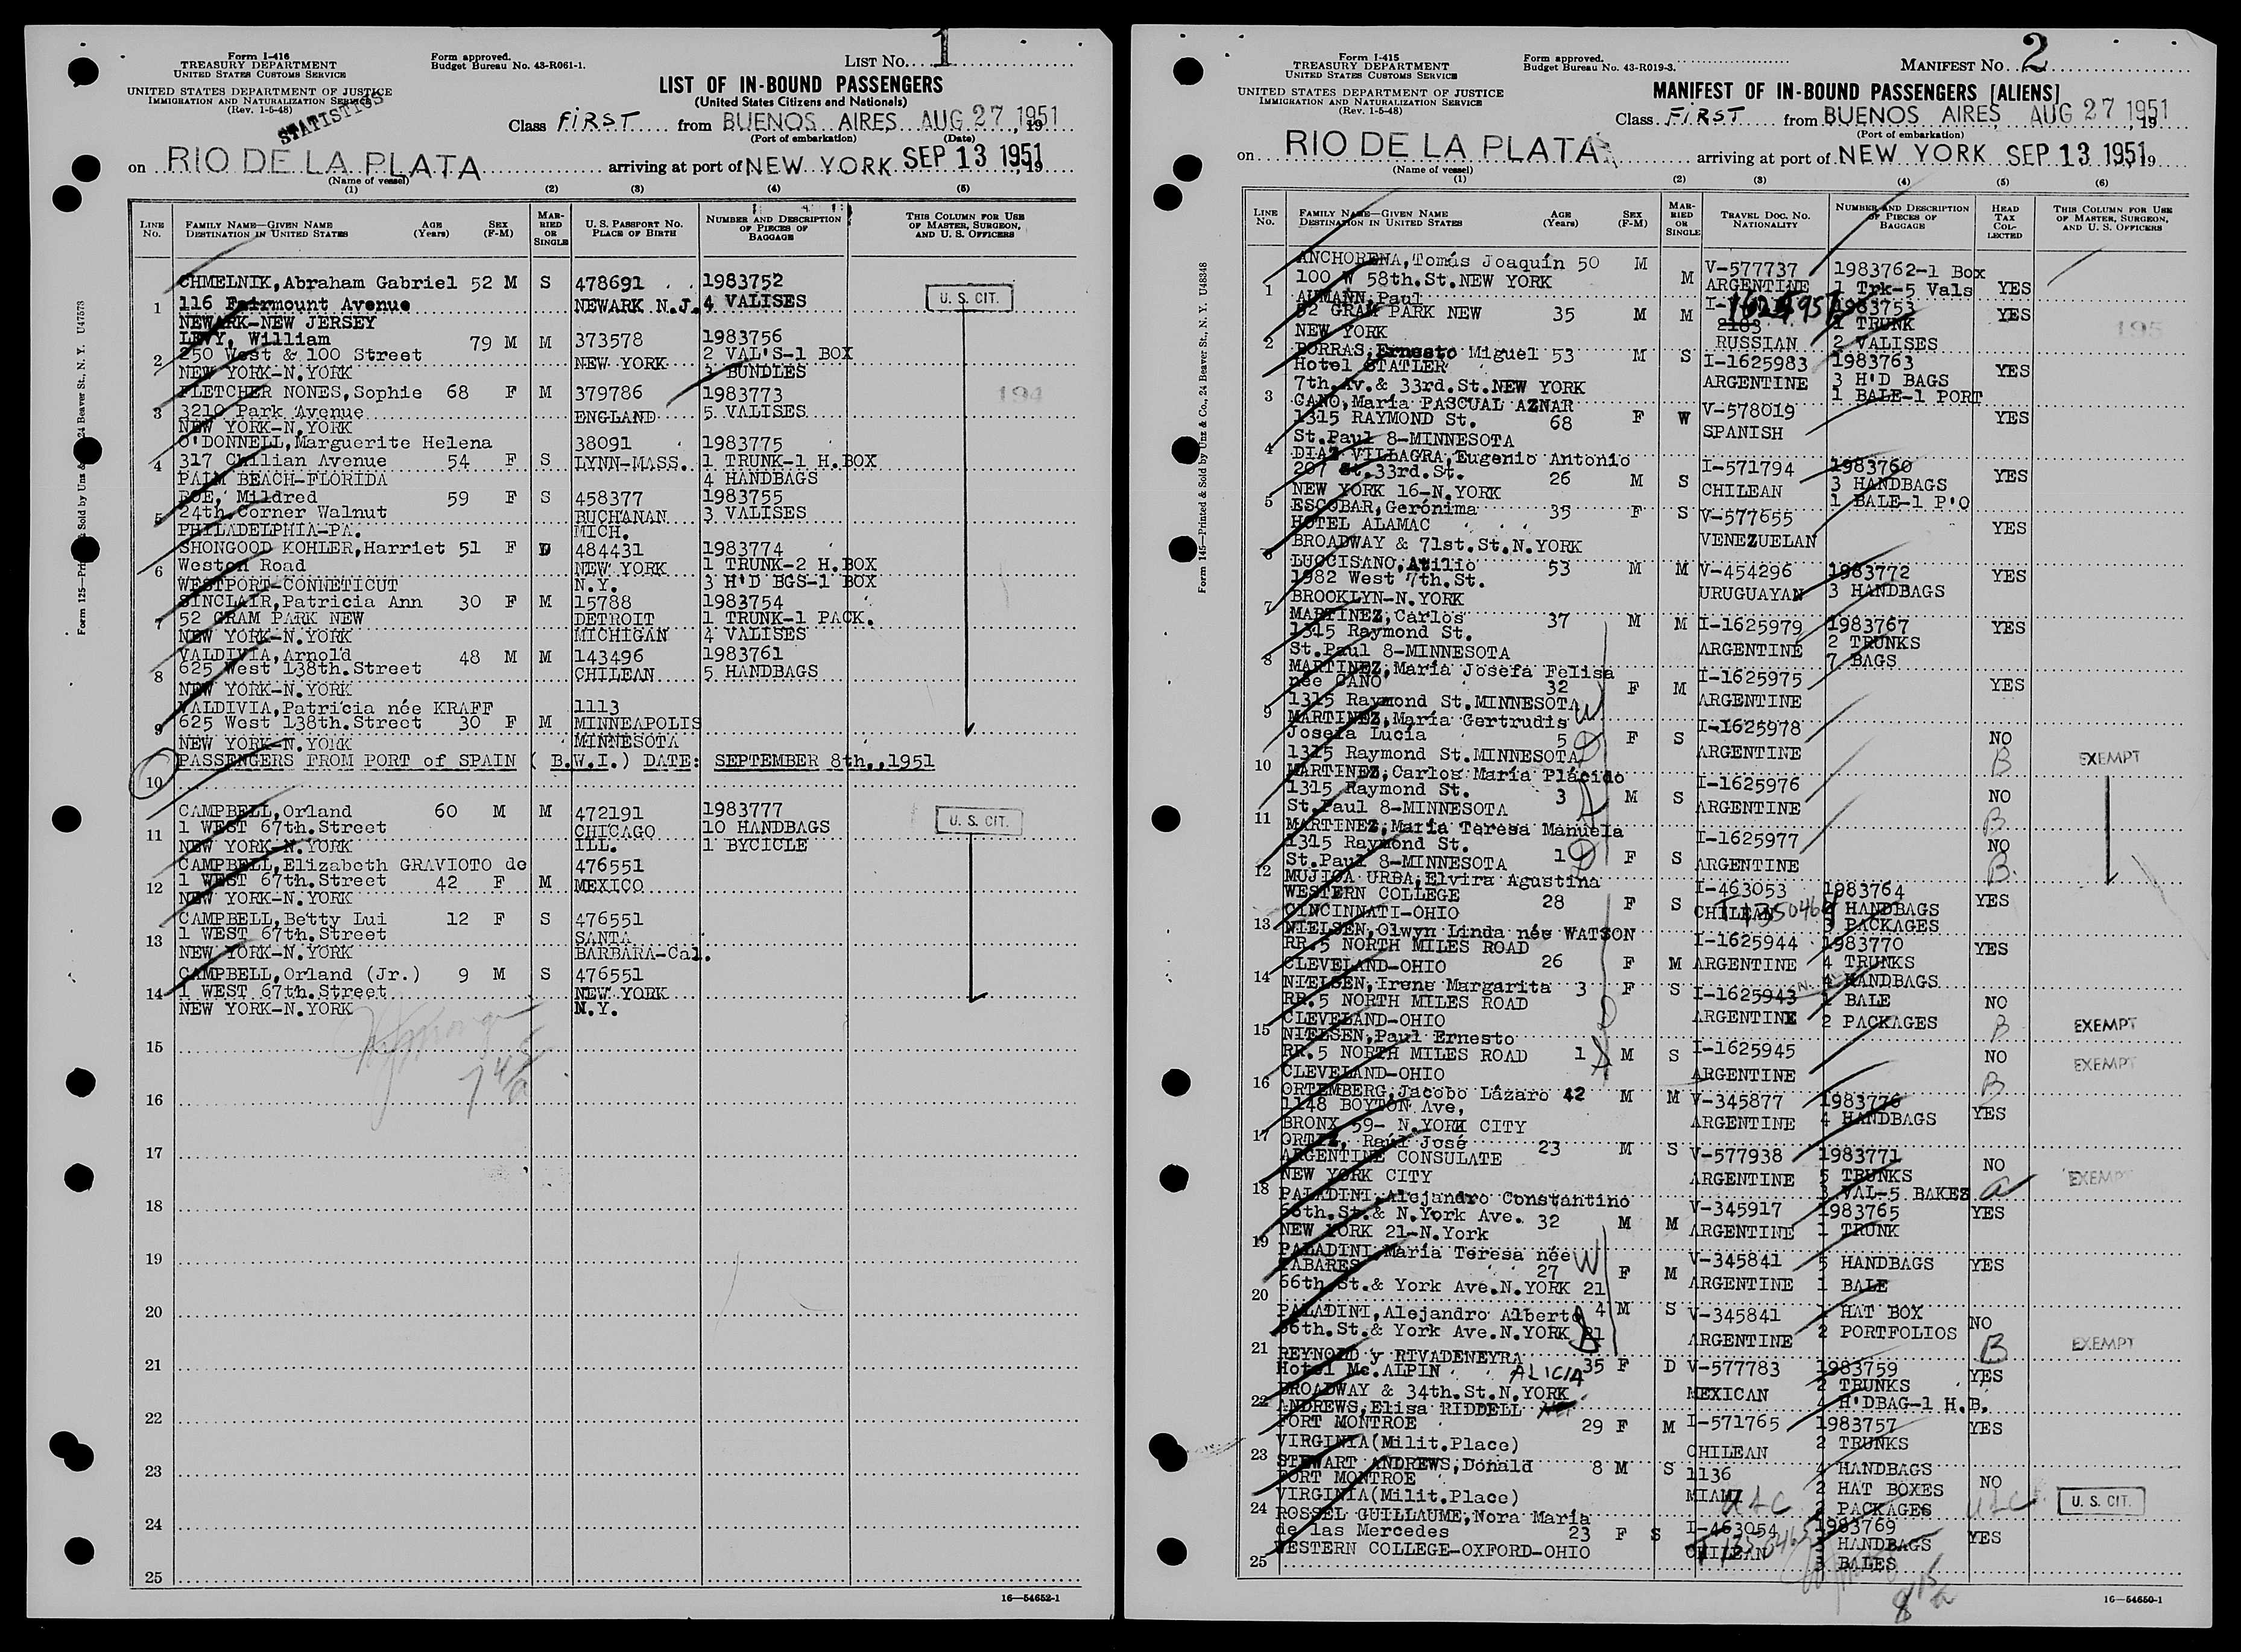 Form I-416
TREASURY DEPARTMENT
UNITED STATES CUSTOMS SERVICE
Form approved.
Budget Bureau No. 43-R061-1.
LIST No. 1
UNITED STATES DEPARTMENT OF JUSTICE
IMMIGRATION AND NATURALIZATION SERVICE
(Rev. 1-5-48)
STATISTICS
LIST OF IN-BOUND PASSENGERS
(United States Citizens and Nationals)
Class FIRST from BUENOS AIRES AUG 27 1951, 19
(Port of embarkation) (Date)
on RIO DE LA PLATA arriving at port of NEW YORK SEP 13 1951, 19
(Name of vessel)
(1) (2) (3) (4) (5)
LINE No.
FAMILY NAME—GIVEN NAME AGE (Years) SEX (F-M)
DESTINATION IN UNITED STATES
MARRIED OR SINGLE
U. S. PASSPORT NO. PLACE OF BIRTH
NUMBER AND DESCRIPTION OF PIECES OF BAGGAGE
THIS COLUMN FOR USE OF MASTER, SURGEON, AND U. S. OFFICERS
CHMELNIK, Abraham Gabriel 52 M S 478691 1983752
1 116 Fairmount Avenue NEWARK N.J. 4 VALISES U. S. CIT.
NEWARK-NEW JERSEY
LEVY, William 79 M M 373578 1983756
2 250 West & 100 Street NEW YORK 2 VAL'S-1 BOX
NEW YORK-N.YORK 3 BUNDLES
FLETCHER NONES, Sophie 68 F M 379786 1983773 194
3 3210 Park Avenue ENGLAND 5 VALISES
NEW YORK-N.YORK
O'DONNELL, Marguerite Helena 38091 1983775
4 317 Chilian Avenue 54 F S LYNN-MASS. 1 TRUNK-1 H.BOX
PALM BEACH-FLORIDA 4 HANDBAGS
POE, Mildred 59 F S 458377 1983755
5 24th.Corner Walnut BUCHANAN 3 VALISES
PHILADELPHIA-PA. MICH.
SHONGOOD KOHLER, Harriet 51 F D 484431 1983774
6 Weston Road NEW YORK 1 TRUNK-2 H.BOX
WESTPORT-CONNETICUT N.Y. 3 H'D BGS-1 BOX
SINCLAIR, Patricia Ann 30 F M 15788 1983754
7 52 GRAM PARK NEW DETROIT 1 TRUNK-1 PACK.
NEW YORK-N.YORK MICHIGAN 4 VALISES
VALDIVIA, Arnold 48 M M 143496 1983761
8 625 West 138th.Street CHILEAN 5 HANDBAGS
NEW YORK-N.YORK
VALDIVIA, Patricia née KRAFF 1113
9 625 West 138th.Street 30 F M MINNEAPOLIS
NEW YORK-N.YORK MINNESOTA
PASSENGERS FROM PORT of SPAIN ( B.W.I.) DATE: SEPTEMBER 8th.,1951
10
CAMPBELL, Orland 60 M M 472191 1983777
11 1 WEST 67th.Street CHICAGO 10 HANDBAGS U. S. CIT.
NEW YORK-N.YORK ILL. 1 BYCICLE
CAMPBELL, Elizabeth GRAVIOTO de 476551
12 1 WEST 67th.Street 42 F M MEXICO
NEW YORK-N.YORK
CAMPBELL, Betty Lui 12 F S 476551
13 1 WEST 67th.Street SANTA
NEW YORK-N.YORK BARBARA-Cal.
CAMPBELL, Orland (Jr.) 9 M S 476551
14 1 WEST 67th.Street NEW YORK
NEW YORK-N.YORK N.Y.
15
16
17
18
19
20
21
22
23
24
25
16—54652-1
Form I-415
TREASURY DEPARTMENT
UNITED STATES CUSTOMS SERVICE
Form approved.
Budget Bureau No. 43-R019-3.
MANIFEST No. 2
UNITED STATES DEPARTMENT OF JUSTICE
IMMIGRATION AND NATURALIZATION SERVICE
(Rev. 1-5-48)
MANIFEST OF IN-BOUND PASSENGERS [ALIENS]
Class FIRST from BUENOS AIRES, AUG 27 1951, 19
(Port of embarkation)
on RIO DE LA PLATA arriving at port of NEW YORK SEP 13 1951, 19
(Name of vessel)
(1) (2) (3) (4) (5) (6)
LINE No.
FAMILY NAME—GIVEN NAME AGE (Years) SEX (F-M)
DESTINATION IN UNITED STATES
MARRIED OR SINGLE
TRAVEL DOC. NO. NATIONALITY
NUMBER AND DESCRIPTION OF PIECES OF BAGGAGE
HEAD TAX COLLECTED
THIS COLUMN FOR USE OF MASTER, SURGEON, AND U. S. OFFICERS
ANCHORENA, Tomás Joaquín 50 M M V-577737 1983762-1 Box
1 100 W 58th.St.NEW YORK ARGENTINE 1 Trk-5 Vals YES
AUMANN, Paul 1983753
52 GRAM PARK NEW 35 M M 2183 1 TRUNK YES 195
2 NEW YORK RUSSIAN 2 VALISES
PORRAS, Ernesto Miguel 53 M S I-1625983 1983763
Hotel STATLER ARGENTINE 3 H'D BAGS YES
3 7th.Av.& 33rd.St.NEW YORK 1 BALE-1 PORT
CANO, María PASCUAL AZNAR V-578019
1315 RAYMOND St. 68 F W SPANISH YES
4 St.Paul 8-MINNESOTA
DIAZ VILLAGRA, Eugenio Antonio I-571794 1983760
207 St.33rd.St. 26 M S CHILEAN 3 HANDBAGS YES
5 NEW YORK 16-N.YORK 1 BALE-1 P'O
ESCOBAR, Gerónima 35 F S V-577655
HOTEL ALAMAC VENEZUELAN YES
6 BROADWAY & 71st.St.N.YORK
LUCCISANO, Atilio 53 M M V-454296 1983772 YES
1982 West 7th.St. URUGUAYAN 3 HANDBAGS
7 BROOKLYN-N.YORK
MARTINEZ, Carlos 37 M M I-1625979 1983767 YES
1315 Raymond St. ARGENTINE 2 TRUNKS
8 St.Paul 8-MINNESOTA 7 BAGS
MARTINEZ, María Josefa Felisa I-1625975
née CANO 32 F M ARGENTINE YES
9 1315 Raymond St.MINNESOTA W
MARTINEZ, María Gertrudis I-1625978
Josefa Lucía 5 F S ARGENTINE NO
10 1315 Raymond St.MINNESOTA D B EXEMPT
MARTINEZ, Carlos María Plácido I-1625976
1315 Raymond St. 3 M S ARGENTINE NO
11 St.Paul 8-MINNESOTA B
MARTINEZ, María Teresa Manuela I-1625977
1315 Raymond St. 1 F S ARGENTINE NO
12 St.Paul 8-MINNESOTA D B
MUJICA URBA, Elvira Agustina I-463053 1983764
WESTERN COLLEGE 28 F S CHILEAN 2 HANDBAGS YES
13 CINCINNATI-OHIO 3 PACKAGES
NIELSEN, Olwyn Linda née WATSON I-1625944 1983770 YES
RR.5 NORTH MILES ROAD
14 CLEVELAND-OHIO 26 F M ARGENTINE 4 TRUNKS
NIELSEN, Irene Margarita 3 F S I-1625943 4 HANDBAGS
RR.5 NORTH MILES ROAD 1 BALE NO
15 CLEVELAND-OHIO D ARGENTINE 2 PACKAGES B EXEMPT
NIELSEN, Paul Ernesto I-1625945
RR.5 NORTH MILES ROAD 1 M S ARGENTINE NO EXEMPT
16 CLEVELAND-OHIO B
ORTEMBERG, Jacobo Lázaro 42 M M V-345877 1983776
1148 BOYTON Ave, ARGENTINE 4 HANDBAGS YES
17 BRONX 59- N.YORK CITY
ORTIZ, Raúl José 23 M S V-577938 1983771
ARGENTINE CONSULATE ARGENTINE 5 TRUNKS NO
18 NEW YORK CITY 3 VAL-5 BAKES a EXEMPT
PALADINI, Alejandro Constantino V-345917 1983765 YES
66th.St.& N.York Ave. 32 M M ARGENTINE 1 TRUNK
19 NEW YORK 21-N.York
PALADINI, María Teresa née W V-345841 5 HANDBAGS YES
TABARES 27 F M ARGENTINE 1 BALE
20 66th.St.& York Ave.N.YORK 21
PALADINI, Alejandro Alberto 4 M S V-345841 1 HAT BOX NO
66th.St.& York Ave.N.YORK 21 ARGENTINE 2 PORTFOLIOS B EXEMPT
21 REYNOLD y RIVADENEYRA 35 F D V-577783 1983759 YES
Hotel Mc.ALPIN ALICIA MEXICAN 2 TRUNKS
22 BROADWAY & 34th.St.N.YORK 4 H'DBAG-1 H.B.
ANDREWS, Elisa RIDDELL
FORT MONTROE 29 F M I-571765 1983757 YES
23 VIRGINIA(Milit.Place) CHILEAN 2 TRUNKS
STEWART ANDREWS, Donald 8 M S 1136 4 HANDBAGS
FORT MONTROE MIAMI 2 HAT BOXES NO
24 VIRGINIA(Milit.Place) 2 PACKAGES U. S. CIT.
ROSSEL GUILLAUME, Nora María I-463054 1983769
de las Mercedes 23 F S CHILEAN 3 HANDBAGS YES
25 WESTERN COLLEGE-OXFORD-OHIO 3 BALES
16—54650-1
Form 145—Printed & Sold by Unz & Co., 24 Beaver St., N. Y. U48348